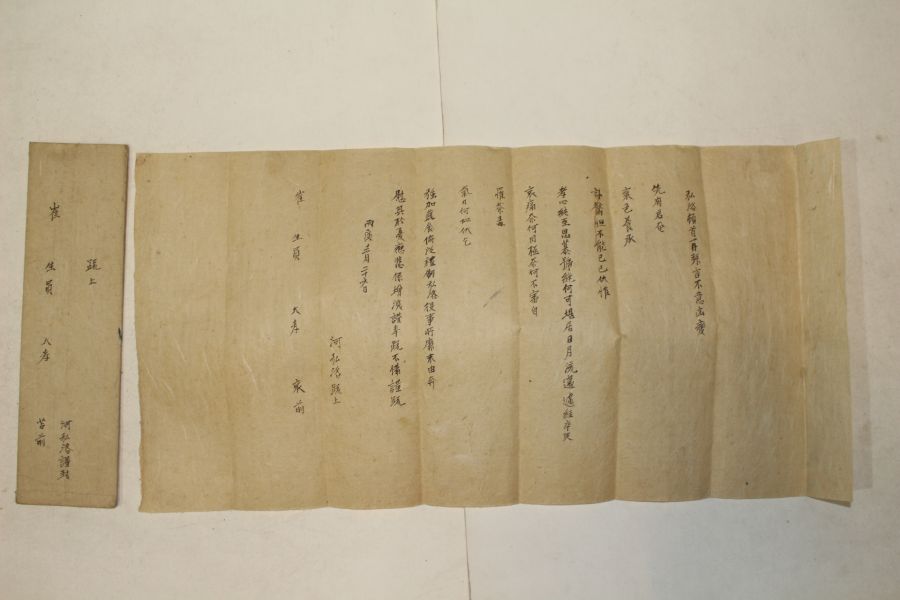 弘洛頓首再拜言不意凶變
先府君奄
棄色養承
訃驚怛不能已已伏惟
孝心純至思慕號絶何可堪居日月流邁遽經卒哭
哀痛奈何罔極奈何不審自
罹荼毒
氣力何似伏乞
强加蔬食俯從禮制弘洛役事所縻末由奔
慰其於憂戀悲係增深謹奉疏不備謹疏
丙寅 月二十 日
河弘洛疏上
崔生員 大孝 哀前
疏上
河弘洛謹封
崔生員 大孝
苫前